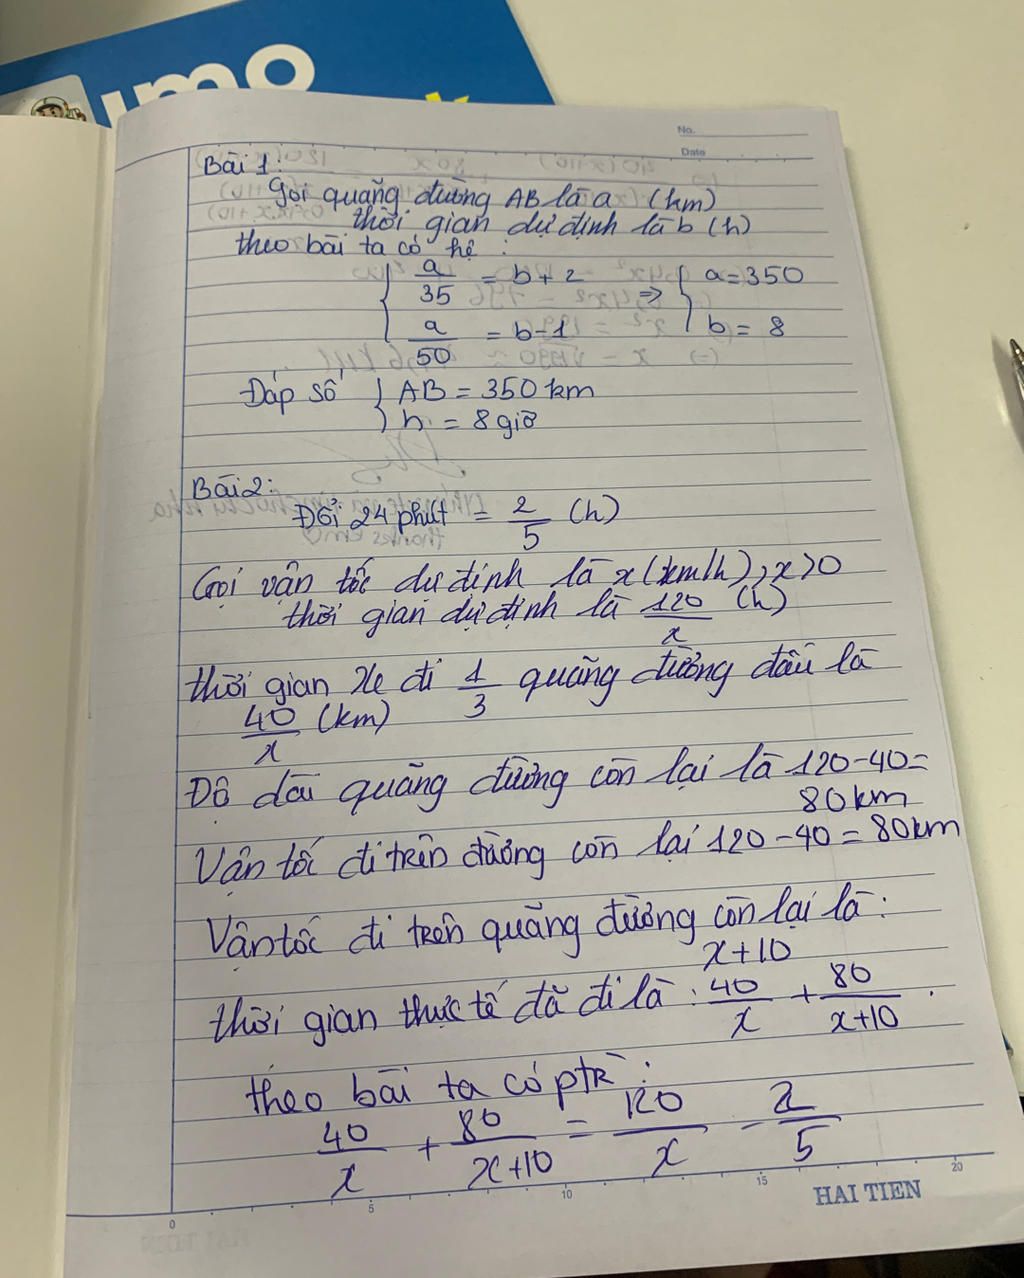 umo
No.
Date
Bài 1:
Gọi quãng đường AB là a (km)
thời gian dự định là b (h)
theo bài ta có hệ :
{ a/35 = b+2 => { a=350
{ a/50 = b-1 { b = 8
Đáp số { AB = 350 km
{ h = 8 giờ
Bài 2:
Đổi 24 phút = 2/5 (h)
Gọi vận tốc dự định là x (km/h), x>0
thời gian dự định là 120/x (h)
thời gian xe đi 1/3 quãng đường đầu là
40/x (km)
Độ dài quãng đường còn lại là 120-40=
80km
Vận tốc đi trên đường còn lại 120-40=80km
Vận tốc đi trên quãng đường còn lại là:
x+10
thời gian thực tế đã đi là : 40/x + 80/(x+10) .
theo bài ta có ptr :
40/x + 80/(x+10) = 120/x - 2/5
0 5 10 15 20
HAI TIEN